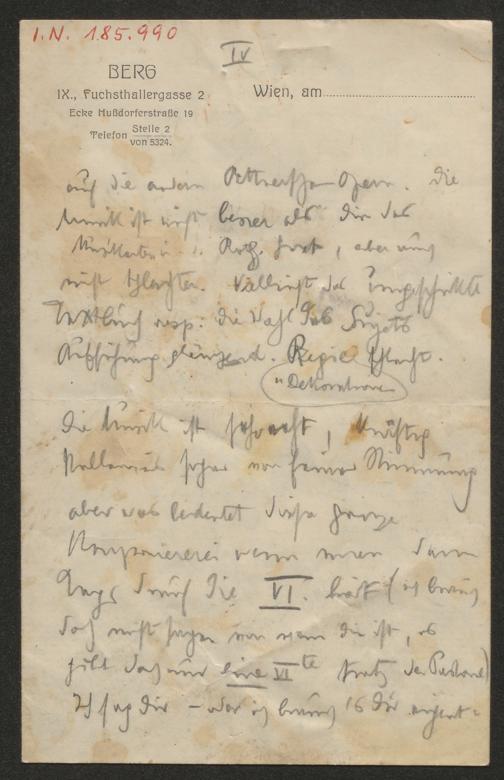 I.N. 185.990
IV
BERG
IX., Fuchsthallergasse 2
Ecke Nußdorferstraße 19
Telefon Stelle 2 von 5324.
Wien, am
auf die andern Opern. Die
Musik ist nicht besser als die des
aber auch
nicht schlechter. Vielleicht das ungeschickte
Textbuch resp. die Wahl des Sujets
Aufführung glänzend. Regie schlecht.
" Dekorationen
Die Musik ist sehr oft, kräftig
stellenweise sogar von feiner Stimmung
aber was bedeutet diese ganze
Komponiererei wenn man dann
Tags drauf die VI. hört (ich brauch
doch nicht sagen von wem die ist, es
gibt doch nur eine VIte trotz der Pastorale)
Ich sag Dir – oder ich brauch es Dir eigent-